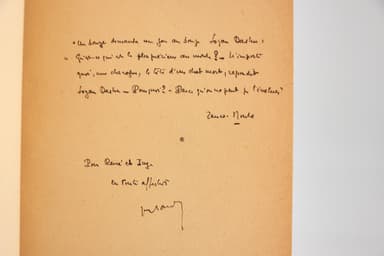 "Un bonze demanda un jour au bonze Sozan Daishu :
" Qu'est-ce qui est le plus précieux au monde ? — N'importe
quoi, une charogne, la tête d'un chat mort, répondit
Sozan Daishu — Pourquoi ? — Parce qu'on ne peut pas l'évaluer"
Zenrin-
Pour René et
en toute affection